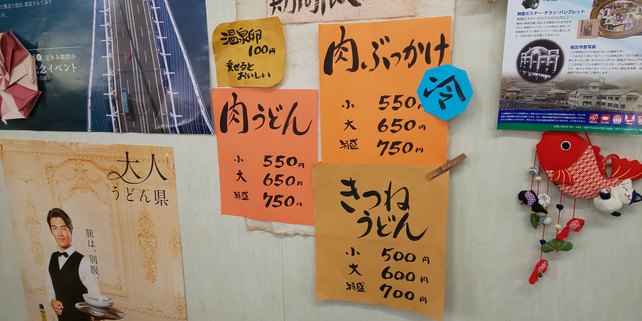 期間限
温泉卵
100円
乗せると
おいしい
肉ぶっかけ
冷
小 550円
大 650円
特盛 750円
肉うどん
小 550円
大 650円
特盛 750円
きつね
うどん
小 500円
大 600円
特盛 700円
大人
うどん県
旅は、別腹
イベント